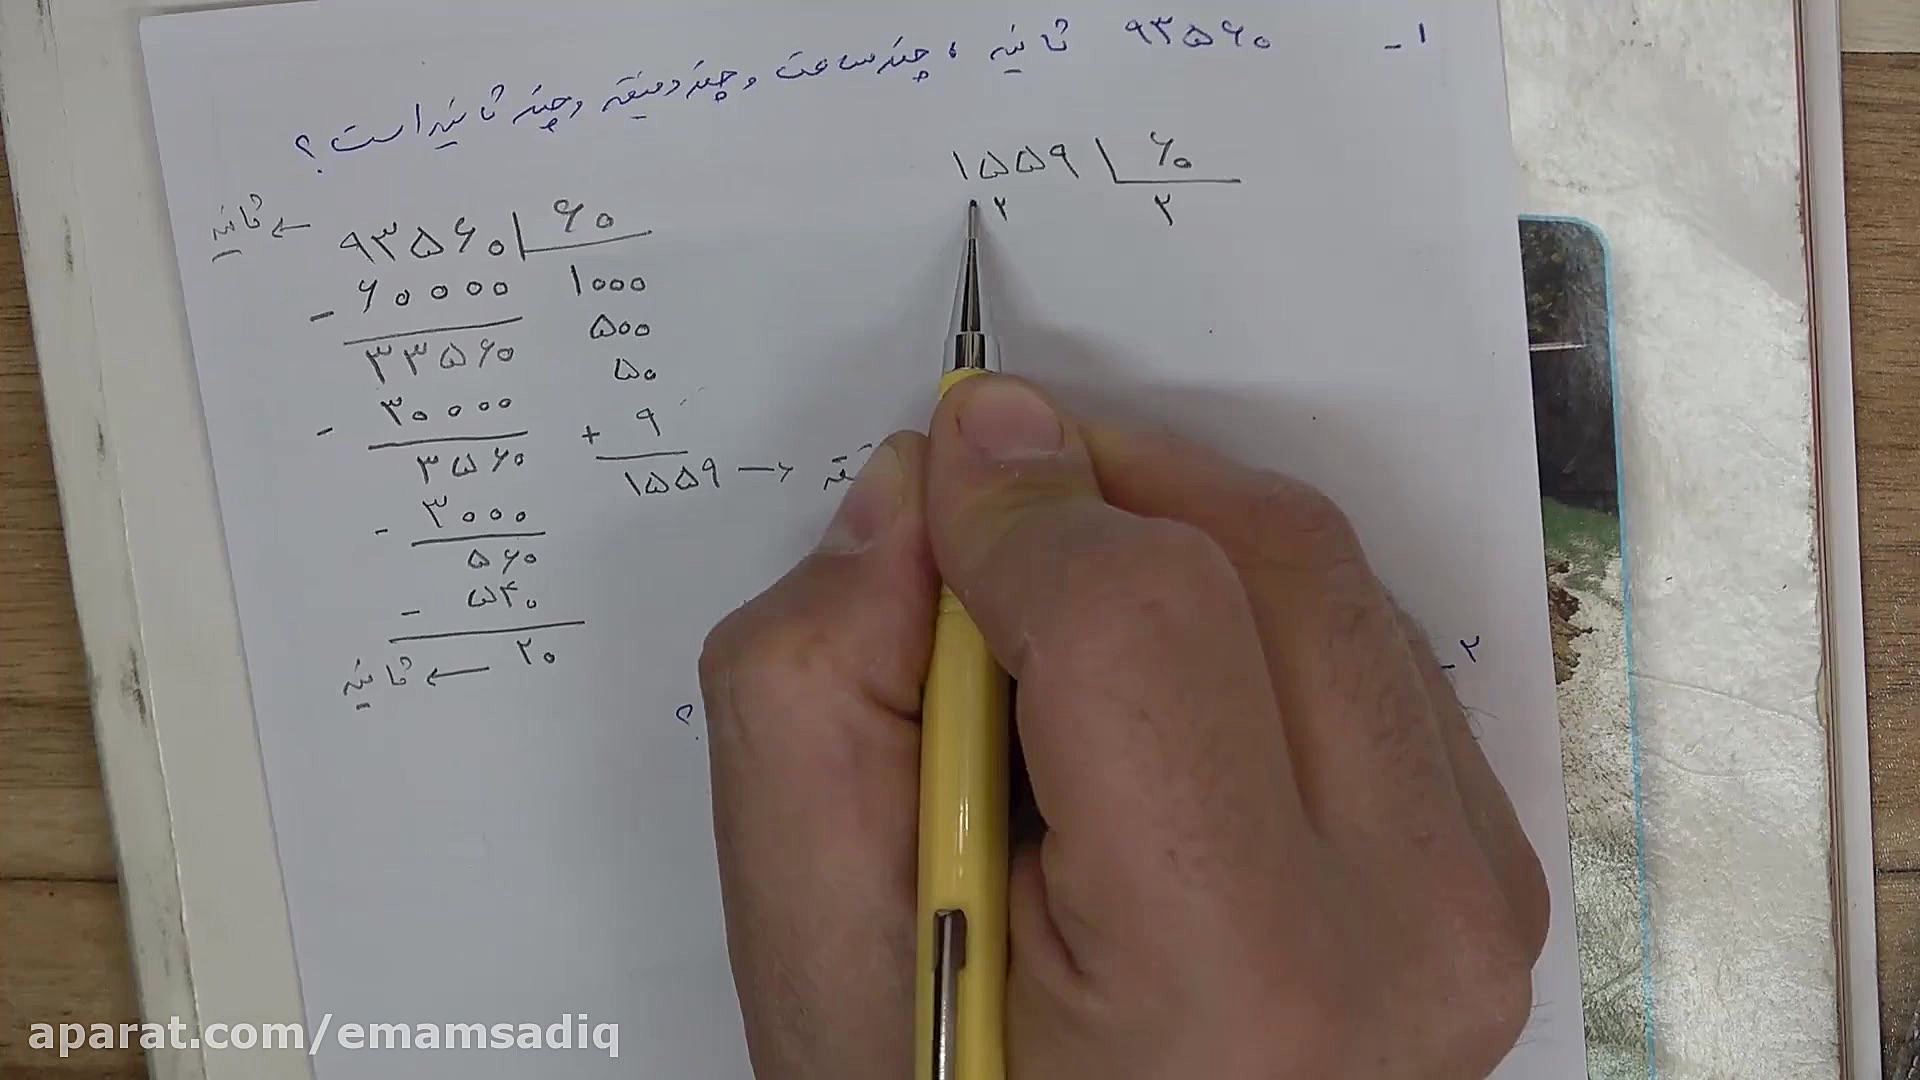 ۱- ۹۳۵۶۰ ثانیه ، چند ساعت و چند دقیقه و چند ثانیه است ؟
۱۵۵۹ ۶۰
۲ ۲
ثانیه ← ۹۳۵۶۰ ۶۰
- ۶۰۰۰۰ ۱۰۰۰
۳۳۵۶۰ ۵۰۰
- ۳۰۰۰۰ ۵۰
۳۵۶۰ + ۹
- ۳۰۰۰ ۱۵۵۹ →
۵۶۰
- ۵۴۰
ثانیه ← ۲۰
۲-
؟
aparat.com/emamsadiq